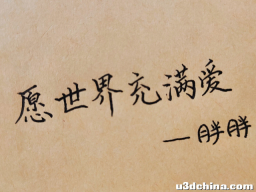 愿世界充满爱
—胖胖
u3dchina.com